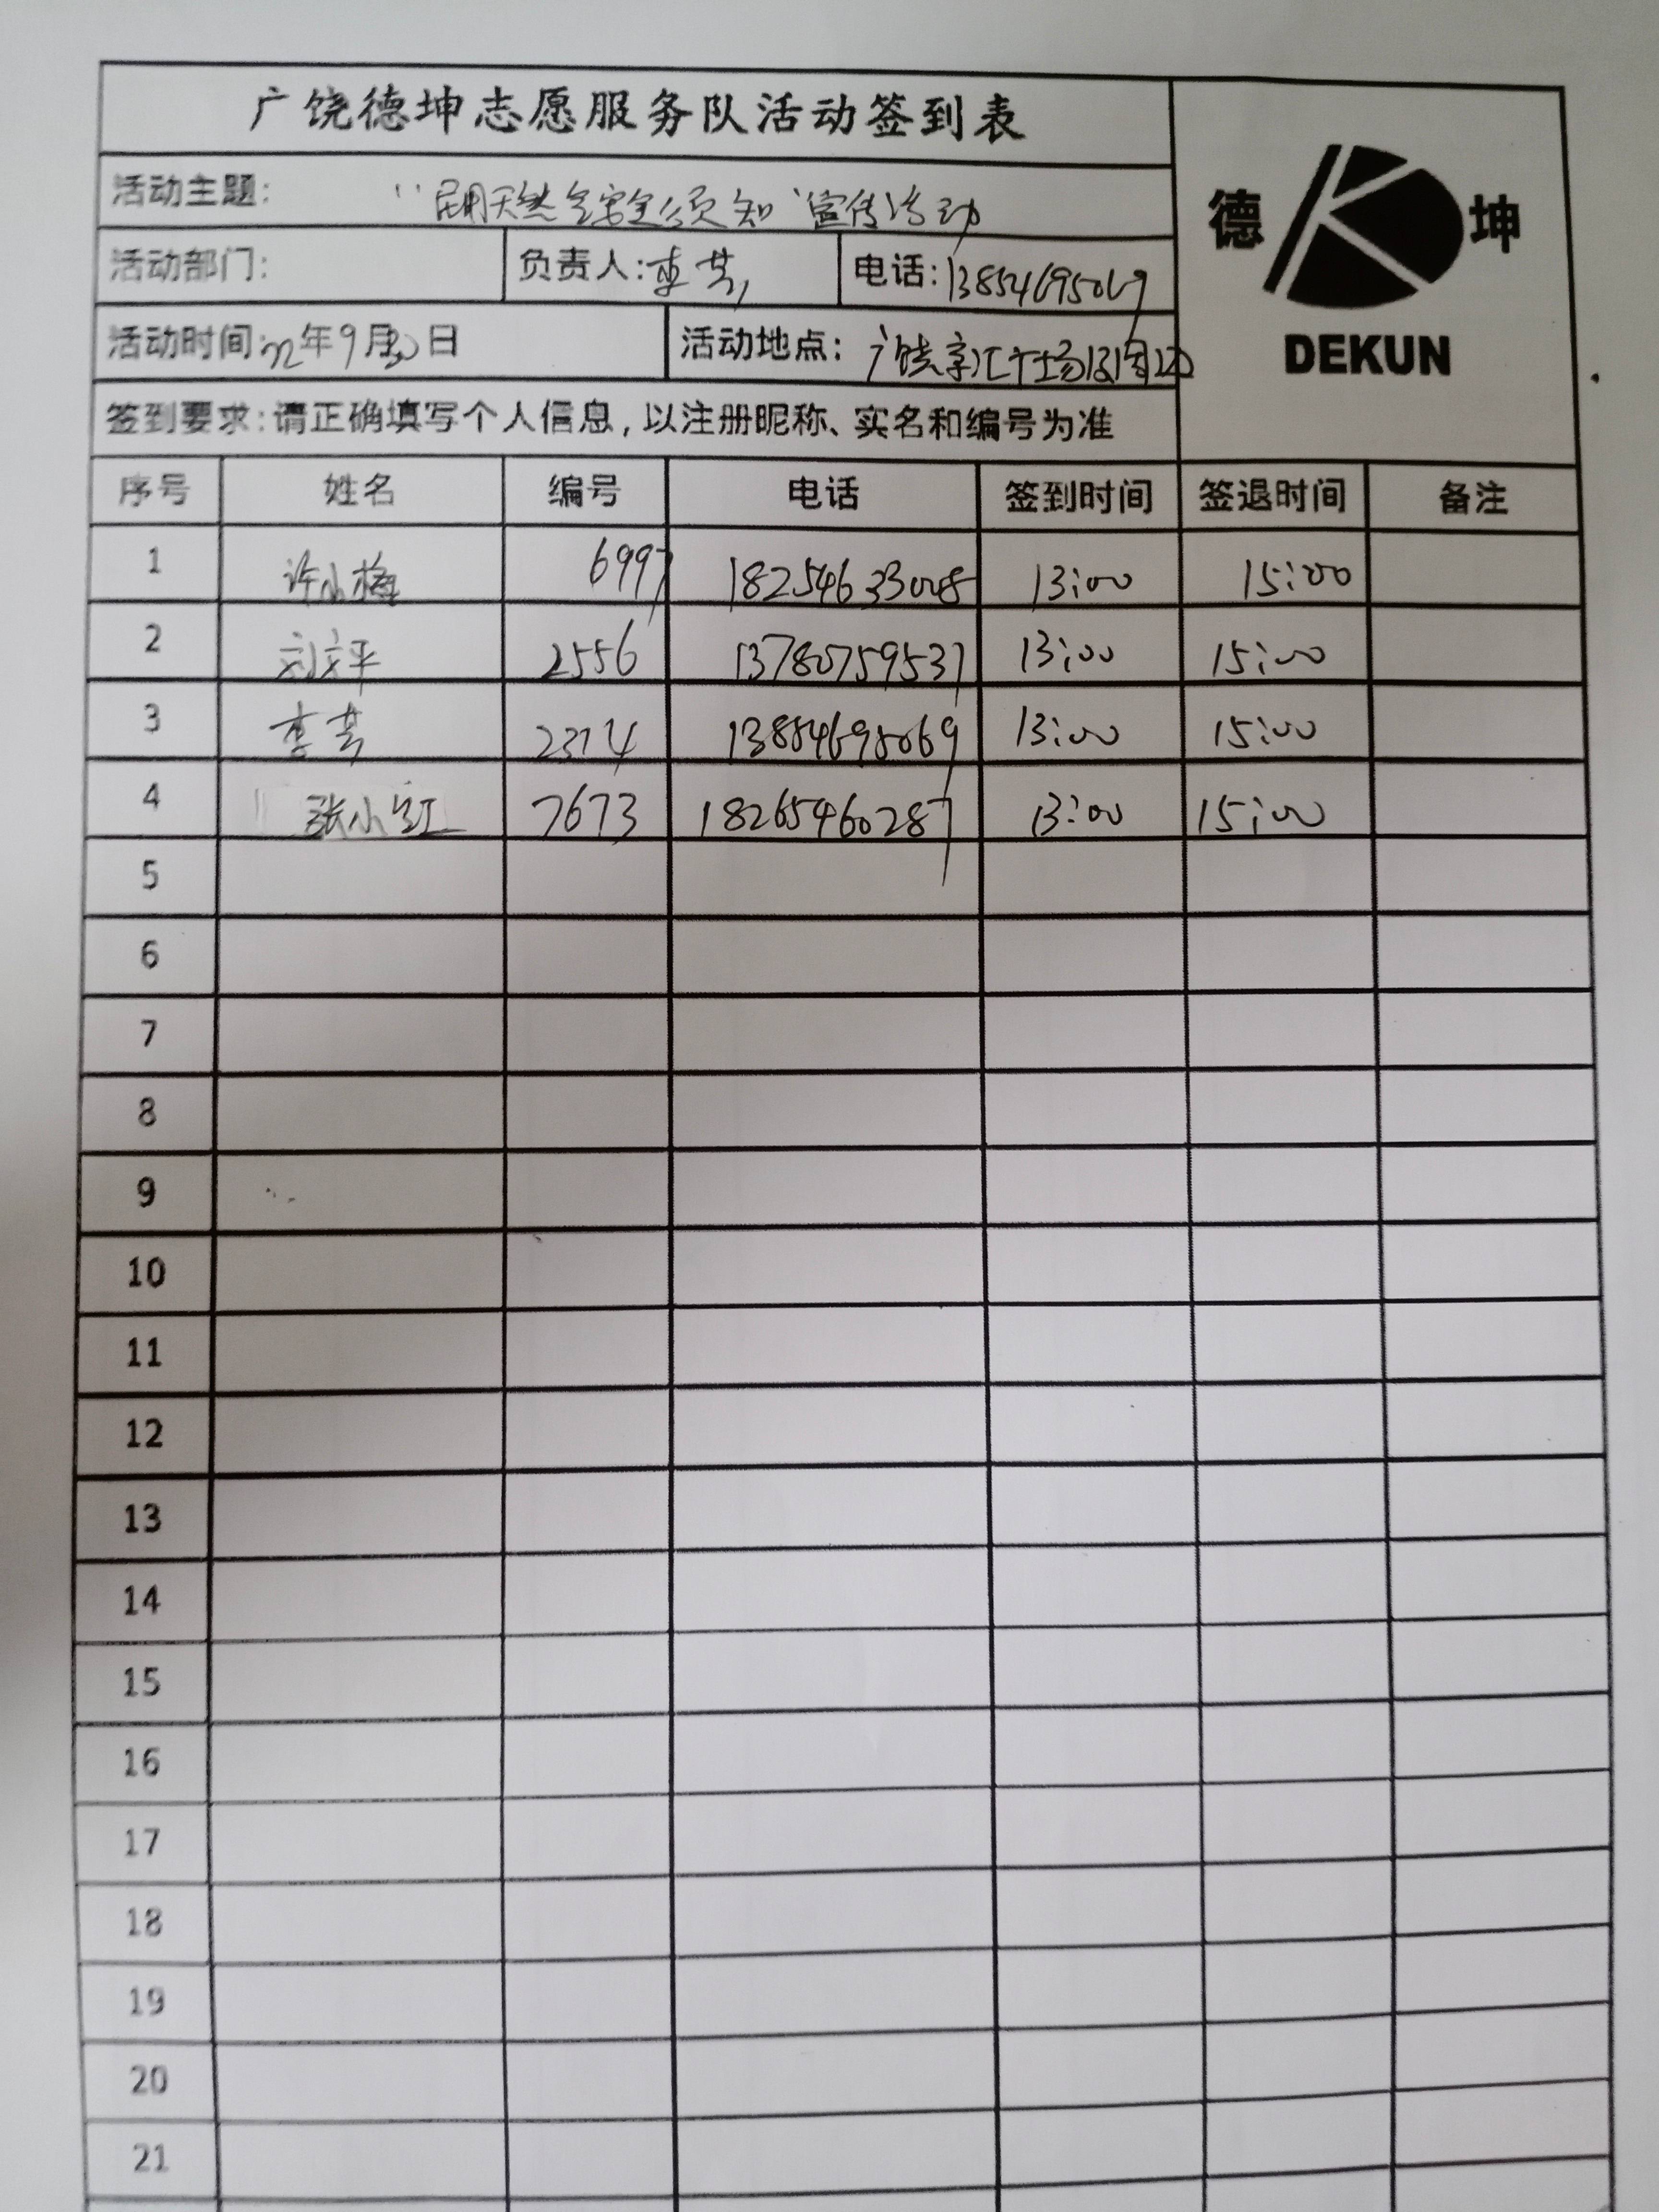 广饶德坤志愿服务队活动签到表
活动主题: "民用天然气安全须知"宣传活动
德 坤
DEKUN
活动部门: 负责人: 李芸 电话: 13854695069
活动时间: 22年9月30日 活动地点: 广饶亨汇广场及周边
签到要求:请正确填写个人信息,以注册昵称、实名和编号为准
序号 姓名 编号 电话 签到时间 签退时间 备注
1 许小梅 6997 18254633008 13:00 15:00
2 刘文平 2556 13780759537 13:00 15:00
3 李芸 2374 13854695069 13:00 15:00
4 张小红 7673 18265460287 13:00 15:00
5
6
7
8
9
10
11
12
13
14
15
16
17
18
19
20
21